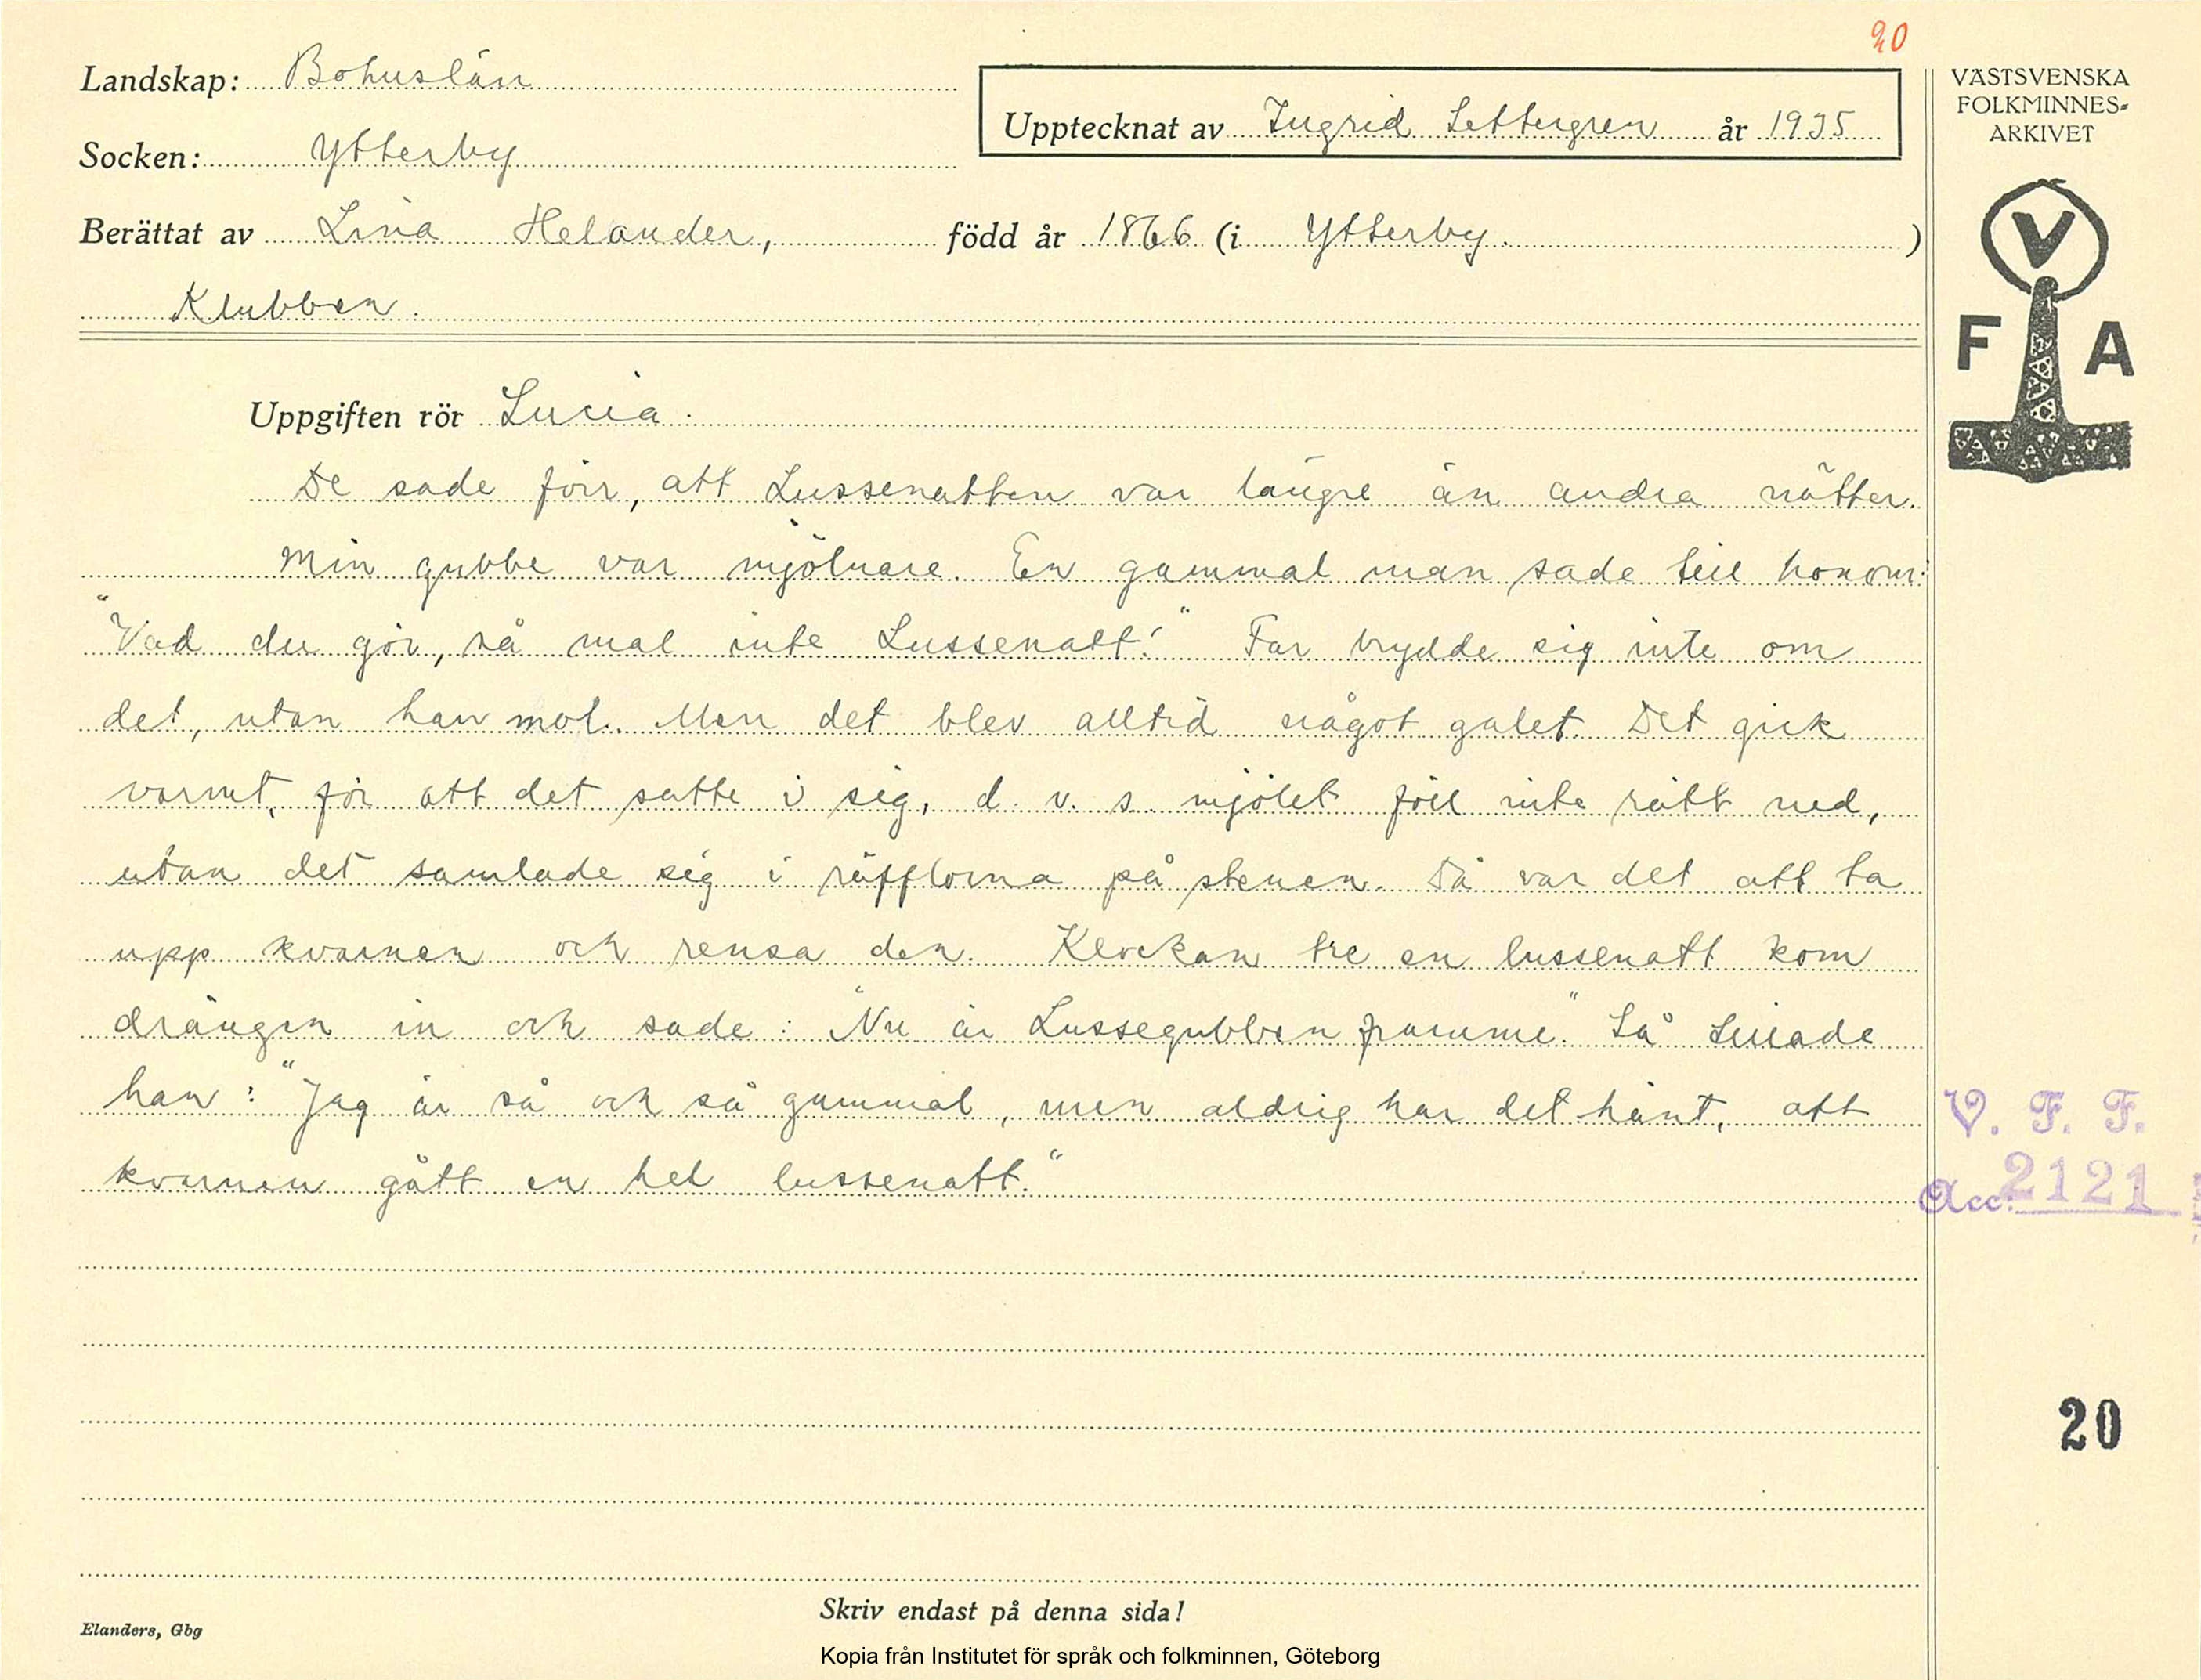 20
Landskap: Bohuslän
Upptecknat av Ingrid Settergren år 1935
Socken: Ytterby
Berättat av Lina Helander, född år 1866 (i Ytterby. )
Klubben.
VÄSTSVENSKA
FOLKMINNES-
ARKIVET
V
F A
Uppgiften rör Lucia.
De sade förr, att Lussenatten var längre än andra nätter.
Min gubbe var mjölnare. En gammal man sade till honom:
"Vad du gör, så mal inte Lussenatt!" Far brydde sig inte om
det, utan han mol. Men det blev alltid något galet. Det gick
varmt, för att det satte i sig, d. v. s. mjölet föll inte rätt ned,
utan det samlade sig i räfflorna på stenen. Då var det att ta
upp kvarnen och rensa den. Klockan tre en lussenatt kom
drängen in och sade: "Nu är Lussegubben framme." Så sade
han: "Jag är så och så gammal, men aldrig har det hänt, att
kvarnen gått en hel lussenatt."
V. F. F.
Acc. 2121
20
Skriv endast på denna sida!
Elanders, Gbg
Kopia från Institutet för språk och folkminnen, Göteborg